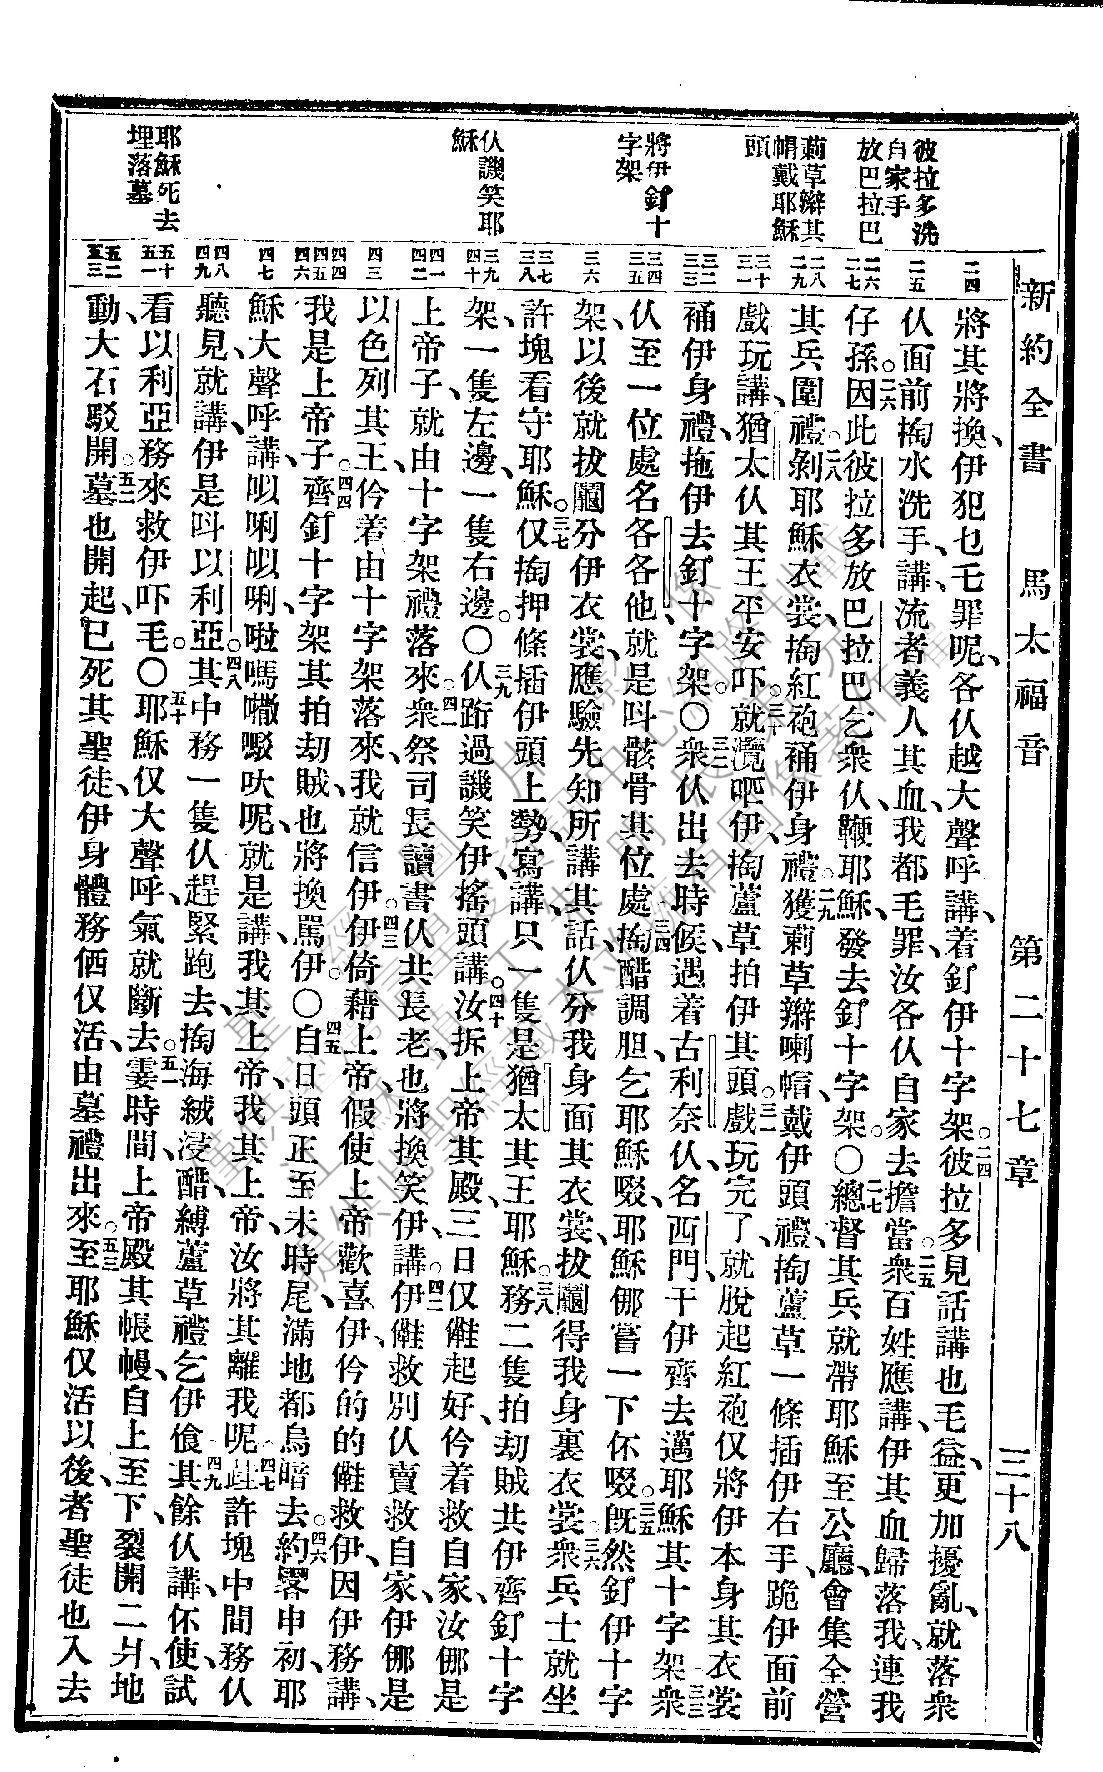 新約全書　馬太福音　第二十七章　三十八
彼拉多洗
自家手
放巴拉巴
莿草辮其
帽戴耶穌
頭
將伊釘十
字架
仈譏笑耶
穌
耶穌死去
埋落墓
二四
二五
二六
二七
二八
二九
三十
三一
三二
三三
三四
三五
三六
三七
三八
三九
四十
四一
四二
四三
四四
四五
四六
四七
四八
四九
五十
五一
五二
五三
將其將換、伊犯乜乇罪呢、各仈越大聲呼講、着釘伊十字架。二四彼拉多見話講也毛益、更加擾亂、就落衆
仈面前掏水洗手、講、流者義人其血、我都毛罪、汝各仈自家去擔當。二五衆百姓應講、伊其血歸落我、連我
仔孫。二六因此彼拉多放巴拉巴乞衆仈、鞭耶穌、發去釘十字架。〇二七總督其兵就帶耶穌至公廳、會集全營
其兵圍禮。二八剝耶穌衣裳、掏紅袍補伊身禮。二九獲莿草辮喇帽戴伊頭禮、掏蘆草一條插伊右手、跪伊面前
戲玩講、猶太仈其王平安吓。三十就瀾吧伊、掏蘆草拍伊其頭。三一戲玩完了、就脫起紅袍、仅將伊本身其衣裳
補伊身禮、拖伊去釘十字架。〇三二衆仈出去時候、遇着古利奈仈、名西門、干伊齊去邁耶穌其十字架。三三衆
仈至一位處名各各他、就是呌骸骨其位處、三四掏醋調胆、乞耶穌啜、耶穌㑚嘗一下伓啜。三五旣然釘伊十字
架、以後就拔鬮分伊衣裳、應驗先知所講其話、仈分我身面其衣裳、拔鬮得我身裏衣裳。三六衆兵士就坐
許塊看守耶穌。三七仅掏押條插伊頭上勢、寫講、只一隻是猶太其王耶穌。三八務二隻拍刧賊共伊齊釘十字
架、一隻左邊、一隻右邊。〇三九仈䟰過譏笑伊、搖頭講、四十汝拆上帝其殿、三日仅㒰起好、伶着救自家、汝㑚是
上帝子、就由十字架禮落來。四一衆祭司長讀書仈共長老、也將換笑伊講、四二伊㒰救別仈、賣救自家、伊㑚是
以色列其王、伶着由十字架落來、我就信伊。四三伊倚藉上帝、假使上帝歡喜伊、伶的的㒰救伊、因伊務講、
我是上帝子。四四齊釘十字架其拍刧賊、也將換罵伊。〇四五自日頭正至未時尾、滿地都烏暗去。四六約畧申初、耶
穌大聲呼講、㕥唎㕥唎啦嗎㘔嘅吠呢、就是講、我其上帝、我其上帝、汝將其離我呢。四七跍許塊中間務仈
聽見、就講、伊是呌以利亞。四八其中務一隻仈趕緊跑去、掏海絨浸醋、縛蘆草禮、乞伊飡。四九其餘仈講、伓使、試
看以利亞務來救伊吓毛。〇五十耶穌仅大聲呼、氣就斷去。五一霎時間上帝殿其帳幔、自上至下裂開二爿、地
動、大石駁開。五二墓也開起、已死其聖徒、伊身體務俖仅活、由墓禮出來。五三至耶穌仅活以後、者聖徒也入去